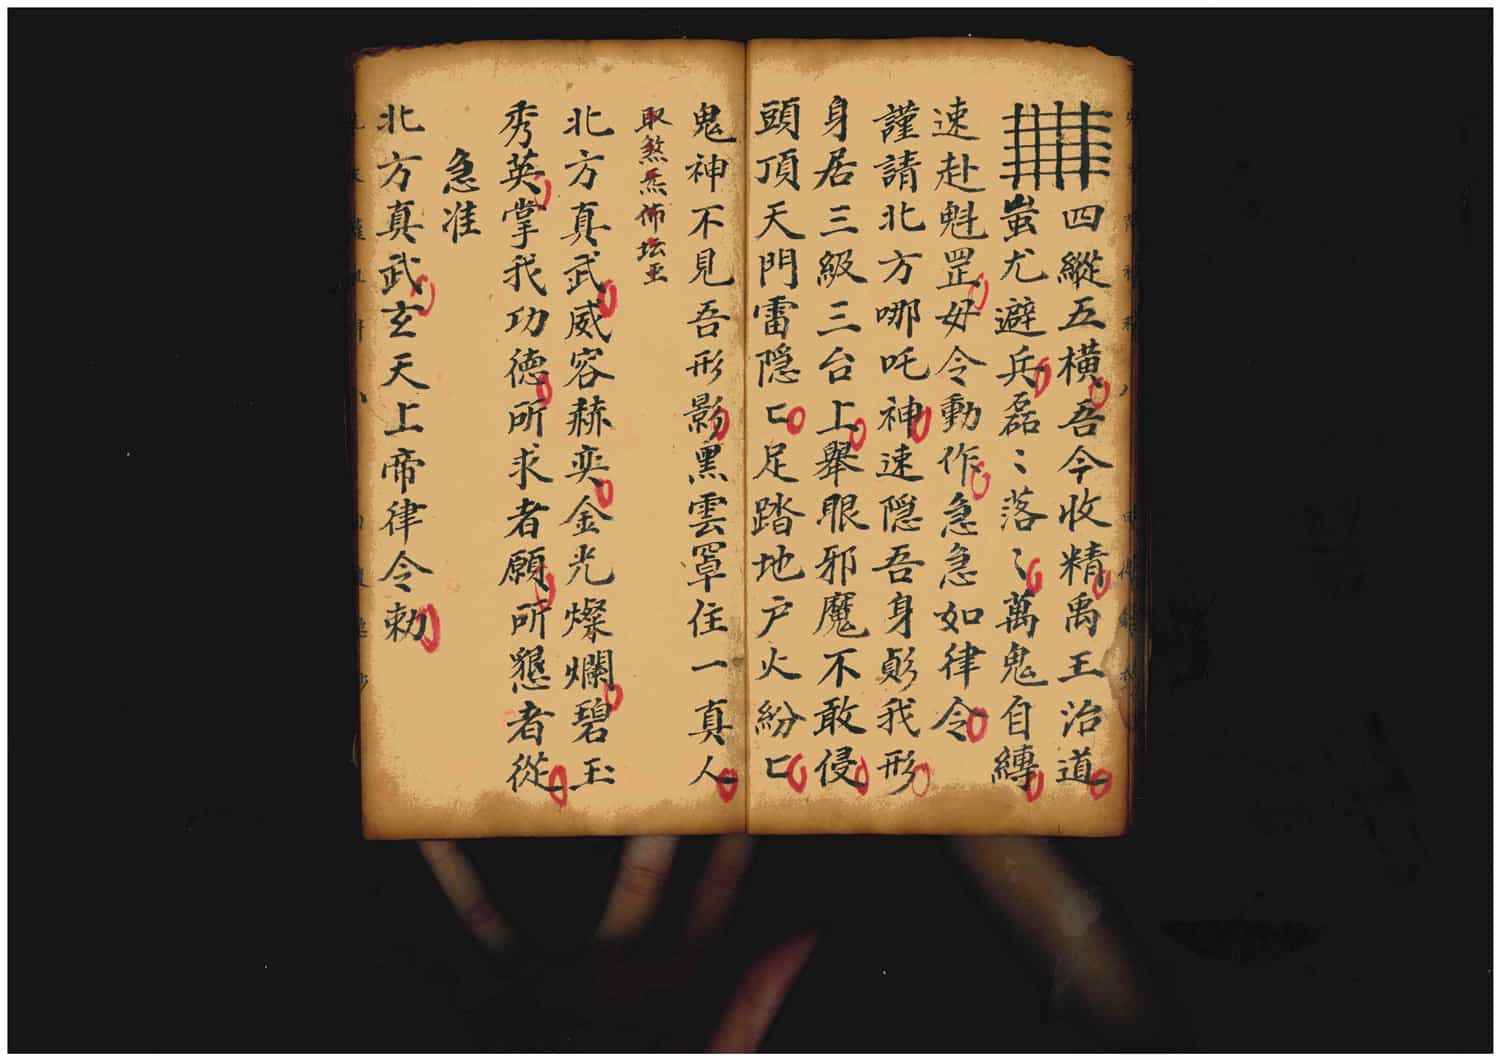 四縱五橫吾今收精禹王治道
蚩尤避兵磊〻落〻萬鬼自縛
速赴魁罡毋令動作急急如律令
謹請北方哪吒神速隠吾身我形
身居三級三台上舉眼邪魔不敢侵
頭頂天門雷隠匸足踏地户火紛匸
鬼神不見吾形影黑雲罩住一真人
取煞炁佈坛
北方真武威容赫奕金光燦爛碧玉
秀英掌我功德所求者願所懇者從
急准
北方真武玄天上帝律令勅